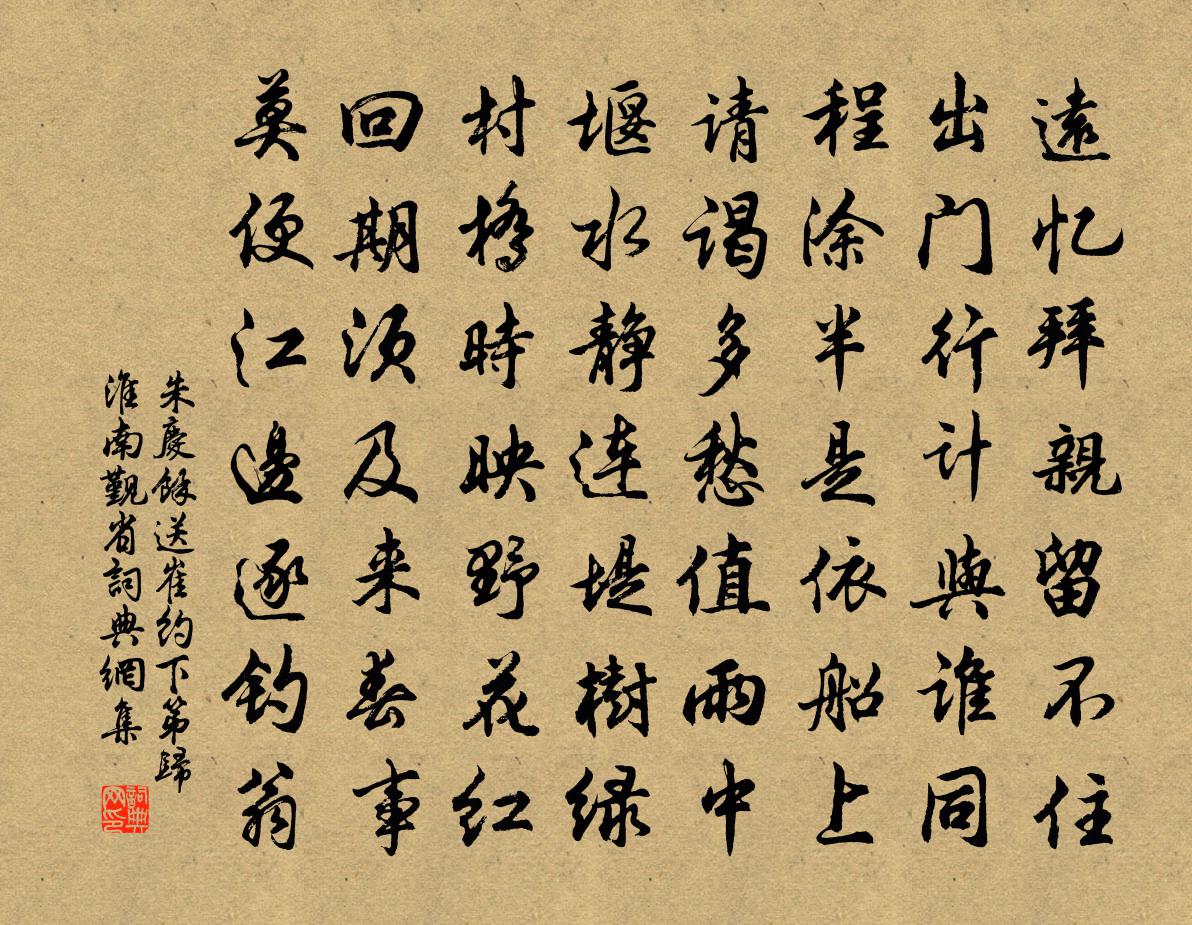 遠忆拜親留不住
出门行计與谁同
程涂半是依船上
请谒多愁值雨中
堰水静连堤樹绿
村橋時映野花红
回期须及来春事
莫便江邊逐钓翁
朱慶餘送崔约下第歸
淮南觐省詞典網集
詞典
网印